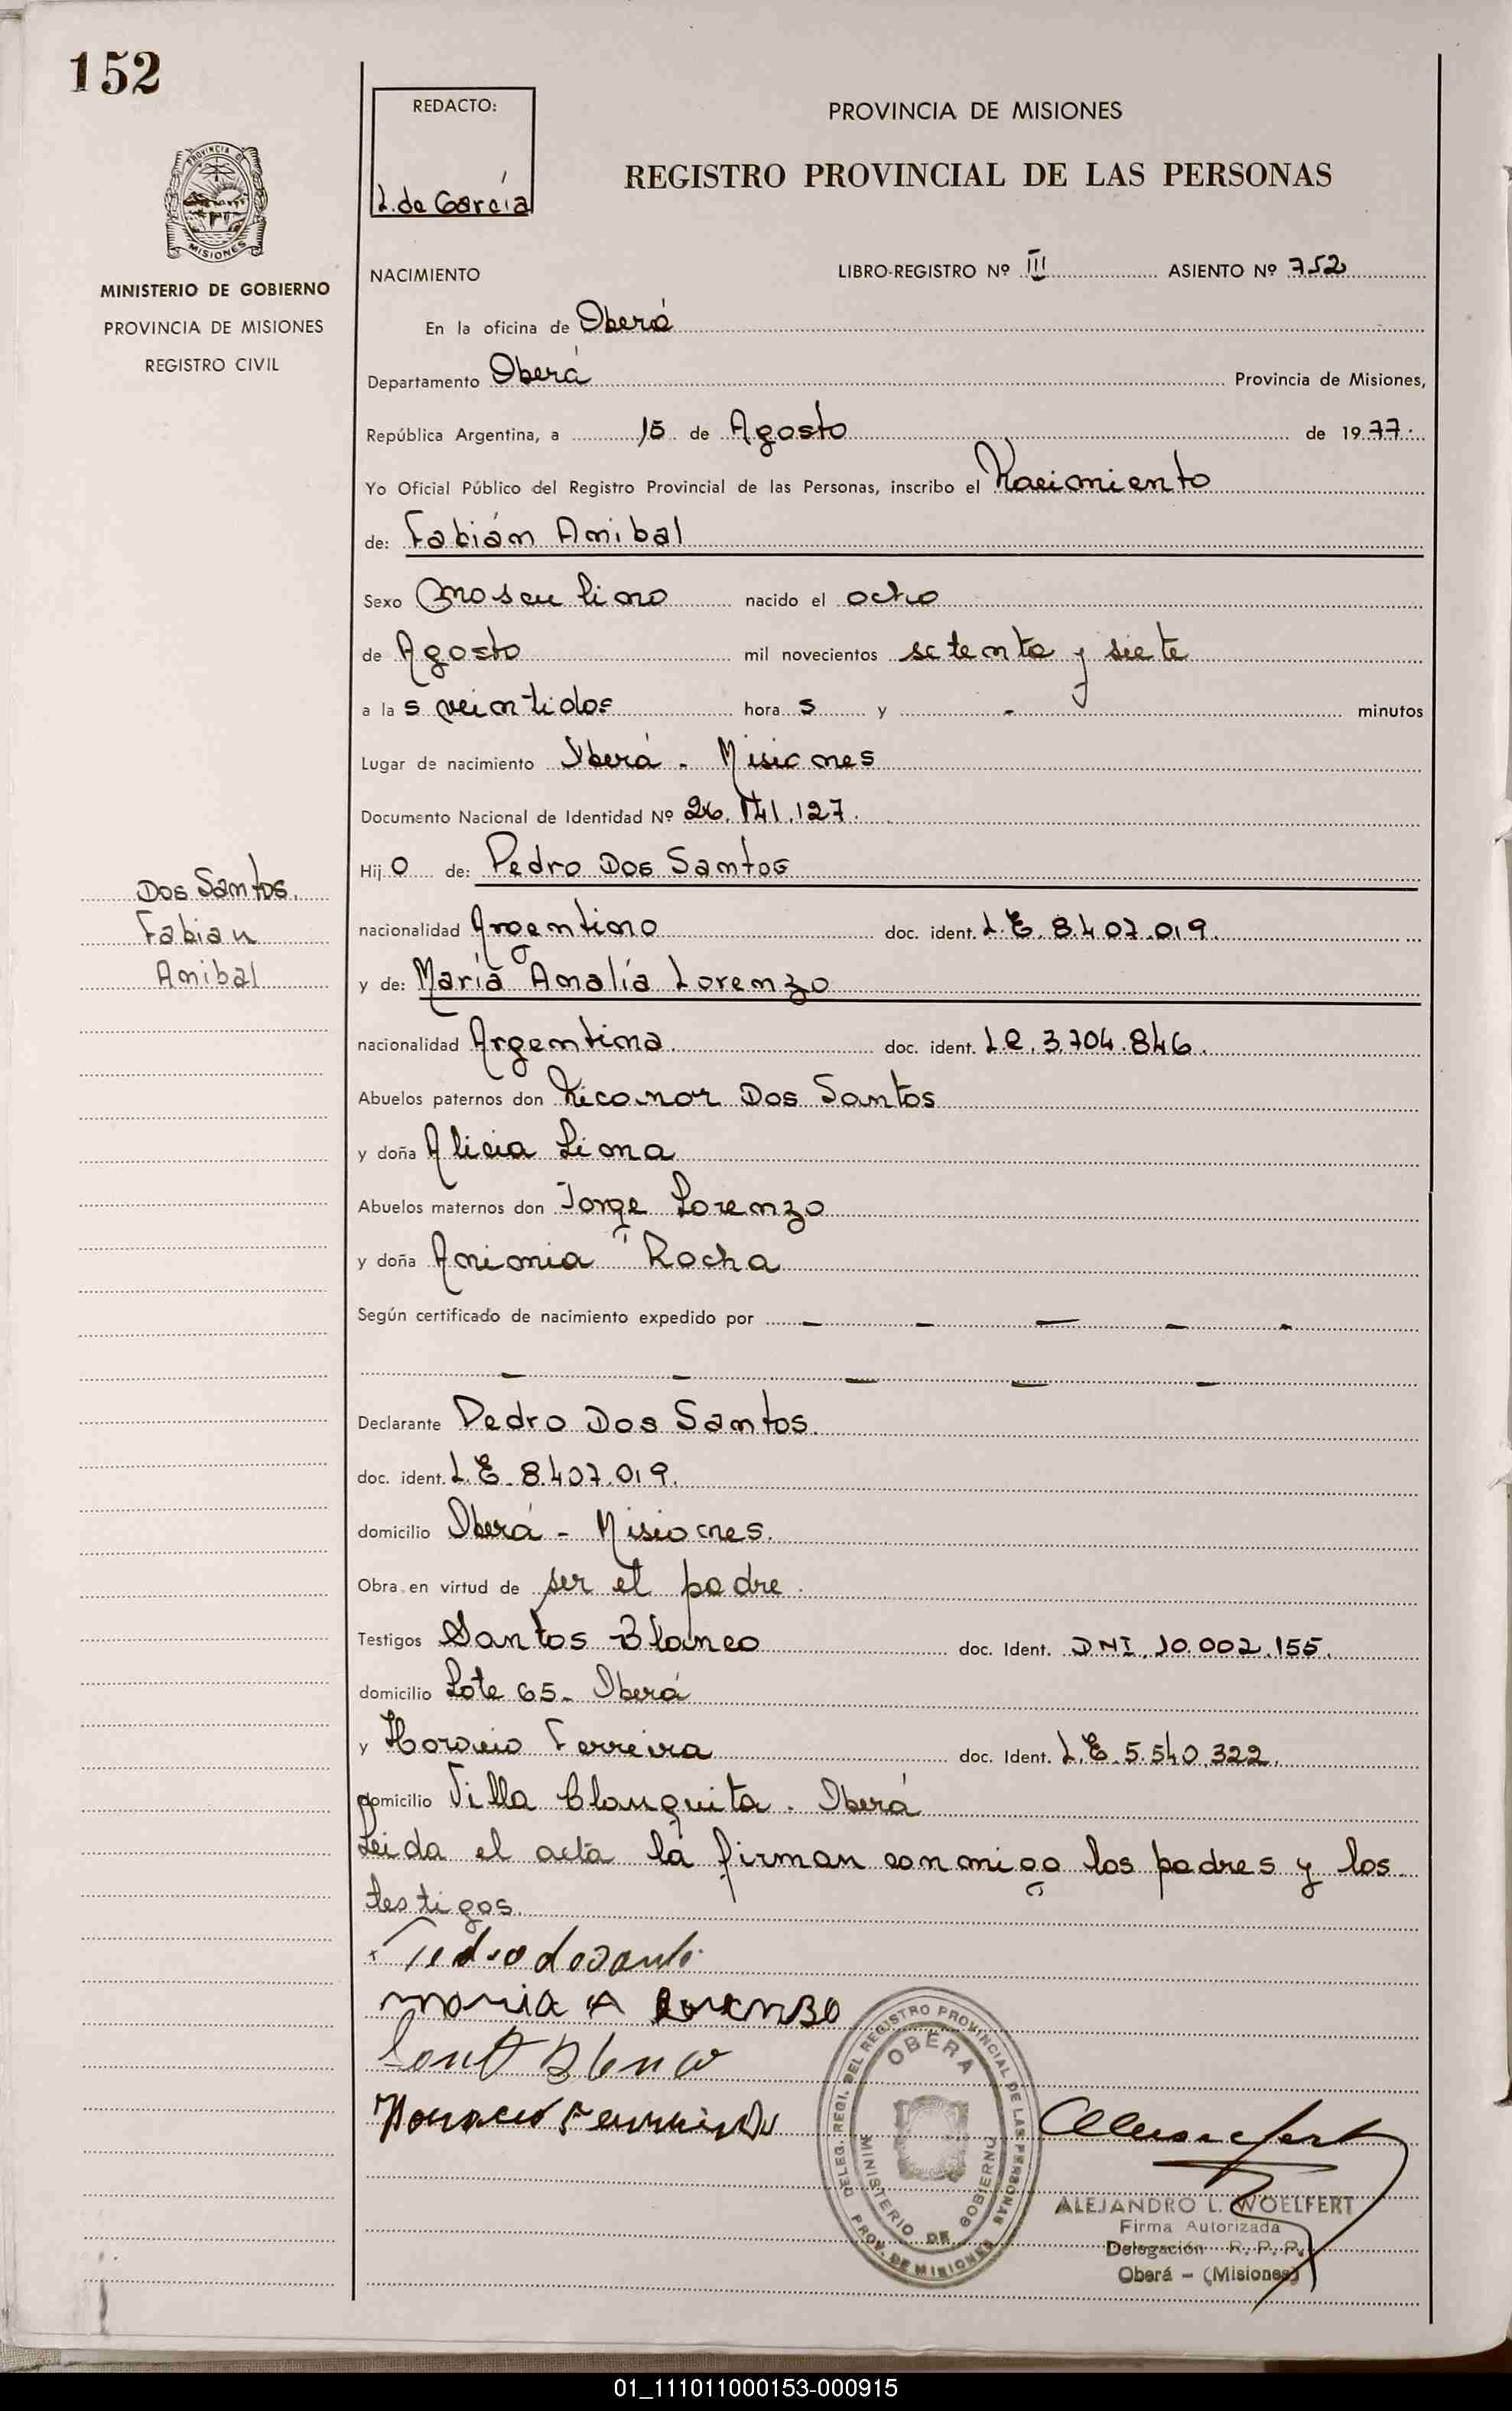 152
REDACTO:
L. de García
PROVINCIA DE MISIONES
REGISTRO PROVINCIAL DE LAS PERSONAS
PROVINCIA DE
MISIONES
MINISTERIO DE GOBIERNO
PROVINCIA DE MISIONES
REGISTRO CIVIL
NACIMIENTO LIBRO-REGISTRO Nº III ASIENTO Nº 752
En la oficina de Oberá
Departamento Oberá Provincia de Misiones,
República Argentina, a 15 de Agosto de 1977.
Yo Oficial Público del Registro Provincial de las Personas, inscribo el Nacimiento
de: Fabián Anibal
Sexo masculino nacido el ocho
de Agosto mil novecientos setenta y siete
a las veintidos horas y - minutos
Lugar de nacimiento Oberá - Misiones
Documento Nacional de Identidad Nº 26.141.127.
Hijo de: Pedro Dos Santos
Dos Santos.
Fabian
Anibal
nacionalidad Argentino doc. ident. L.E. 8.407.019.
y de: María Amalía Lorenzo
nacionalidad Argentina doc. ident. L.C. 3.704.846.
Abuelos paternos don Niconor Dos Santos
y doña Alicia Lima
Abuelos maternos don Jorge Lorenzo
y doña Rocha
Según certificado de nacimiento expedido por - - - - -
- - - - -
Declarante Pedro Dos Santos.
doc. ident. L.E. 8.407.019.
domicilio Oberá - Misiones.
Obra en virtud de ser el padre.
Testigos Santos Blanco doc. Ident. DNI. 10.002.155.
domicilio Lote 65- Oberá
y Horacio Ferreira doc. Ident. L.E. 5.540.322.
domicilio Villa Blanquita. Oberá
Leida el acta la firman conmigo los padres y los
testigos.
maria A Lorenzo
DELEG. REGI. DEL REGISTRO PROVINCIAL DE LAS PERSONAS
OBERA
MINISTERIO DE GOBIERNO
PROV. DE MISIONES
ALEJANDRO L. WOELFERT
Firma Autorizada
Delegación R. P. P.
Oberá - (Misiones)
01_111011000153-000915